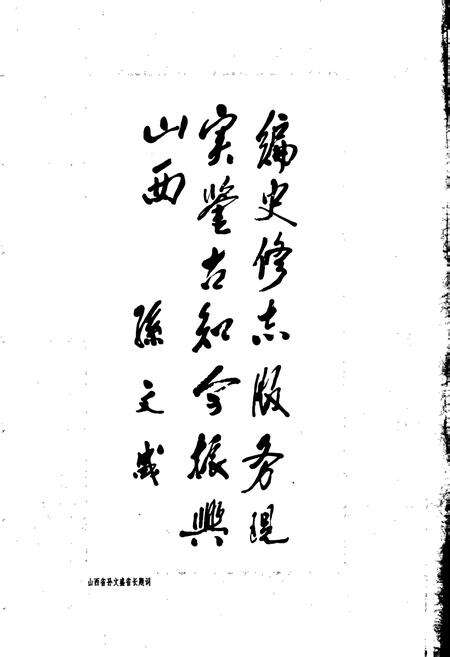 编史修志服务现
实鉴古知今振興
山西
孫文盛
山西省孙文盛省长题词